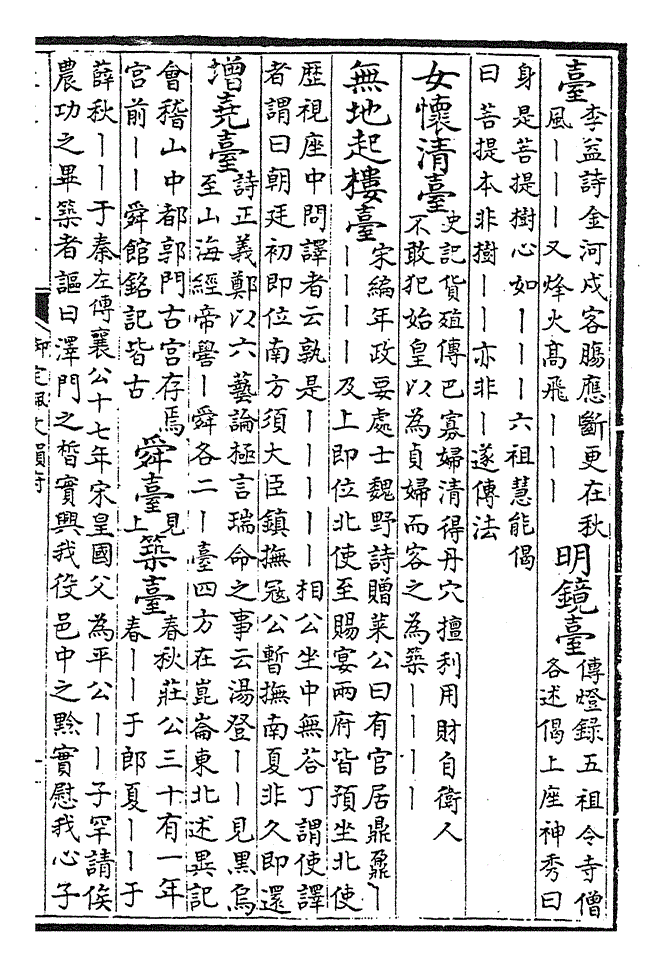 臺李益詩金河戍客腸應斷更在秋
風丨丨丨又烽火髙飛丨丨丨
明鏡臺傳燈錄五祖令寺僧
各述偈上座神秀曰
身是菩提樹心如丨丨丨六祖慧能偈
曰菩提本非樹丨丨亦非丨遂傳法
女懷清臺史記貨殖傳巴寡婦清得丹穴擅利用財自衛人
不敢犯始皇以為貞婦而客之為築丨丨丨丨
無地起樓臺宋編年政要處士魏野詩贈萊公曰有官居鼎鼐丨
丨丨丨丨及上即位北使至賜宴兩府皆預坐北使
歴視座中問譯者云孰是丨丨丨丨丨相公坐中無荅丁謂使譯
者謂曰朝廷初即位南方須大臣鎮撫冦公暫撫南夏非久即還
增堯臺詩正義鄭以六藝論極言瑞命之事云湯登丨丨見黑烏
至山海經帝嚳丨舜各二丨臺四方在崑崙東北述異記
會稽山中都郭門古宮存焉
宮前丨丨舜館銘記皆古
舜臺見
上
築臺春秋莊公三十有一年
春丨丨于郎夏丨丨于
薛秋丨丨于秦左傳襄公十七年宋皇國父為平公丨丨子罕請俟
農功之畢築者謳曰澤門之晳實興我役邑中之黔實慰我心子
御定佩文韻府